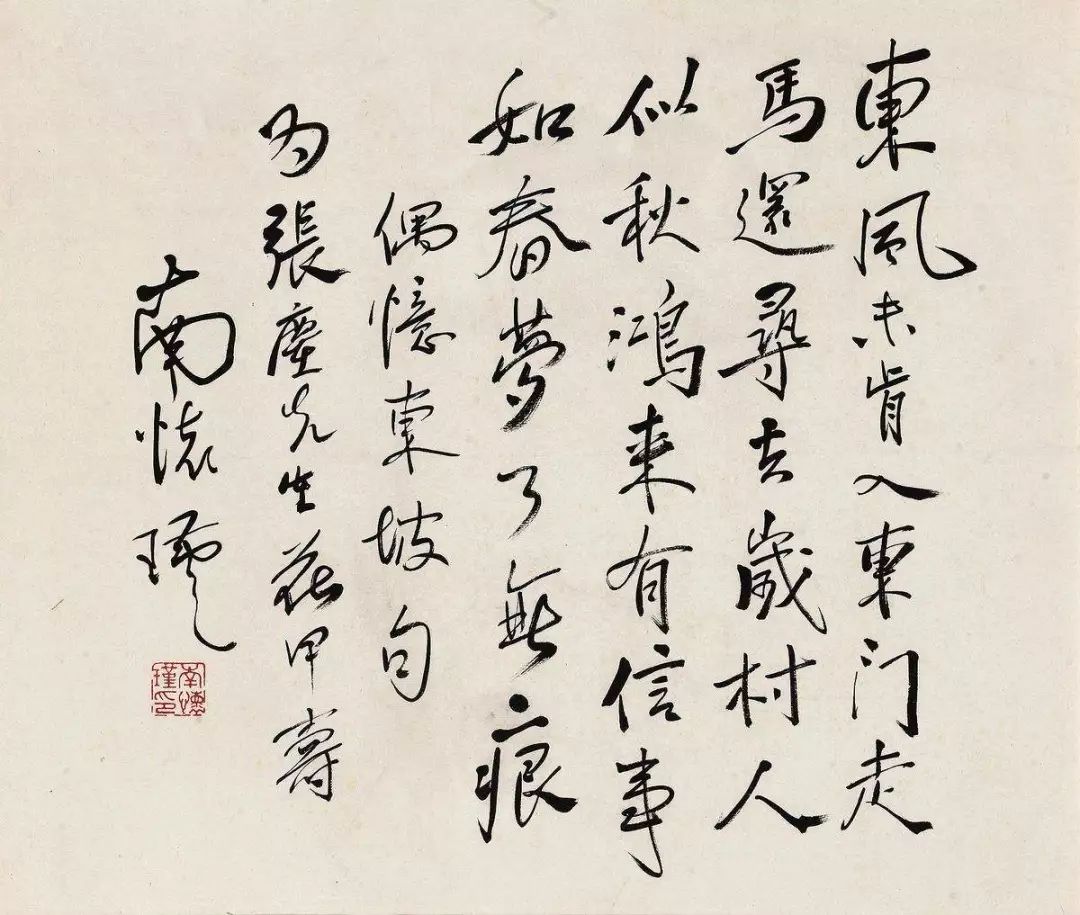 東風未肯入東门走
馬還尋去歲村人
似秋鴻来有信事
如春夢了無痕
偶憶東坡句
为張塵先生花甲壽
南懷瑾
南懷
瑾印